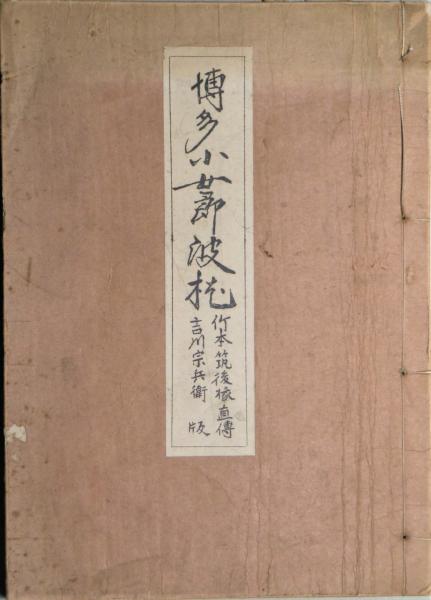 博多小女郎波枕
竹本筑後掾直傳
吉川宗兵衛 版